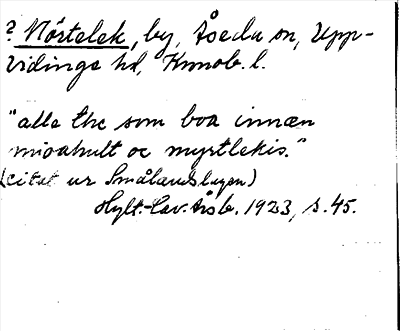 ? Nörtelek, by, Åseda sn, Upp-
vidinge hd, Kronob. l.
"alle the som boa innæn
mioahult oc myrtlekis."
(citat ur Smålandslagen)
Hylt.-Cav. årsb. 1923, s. 45.